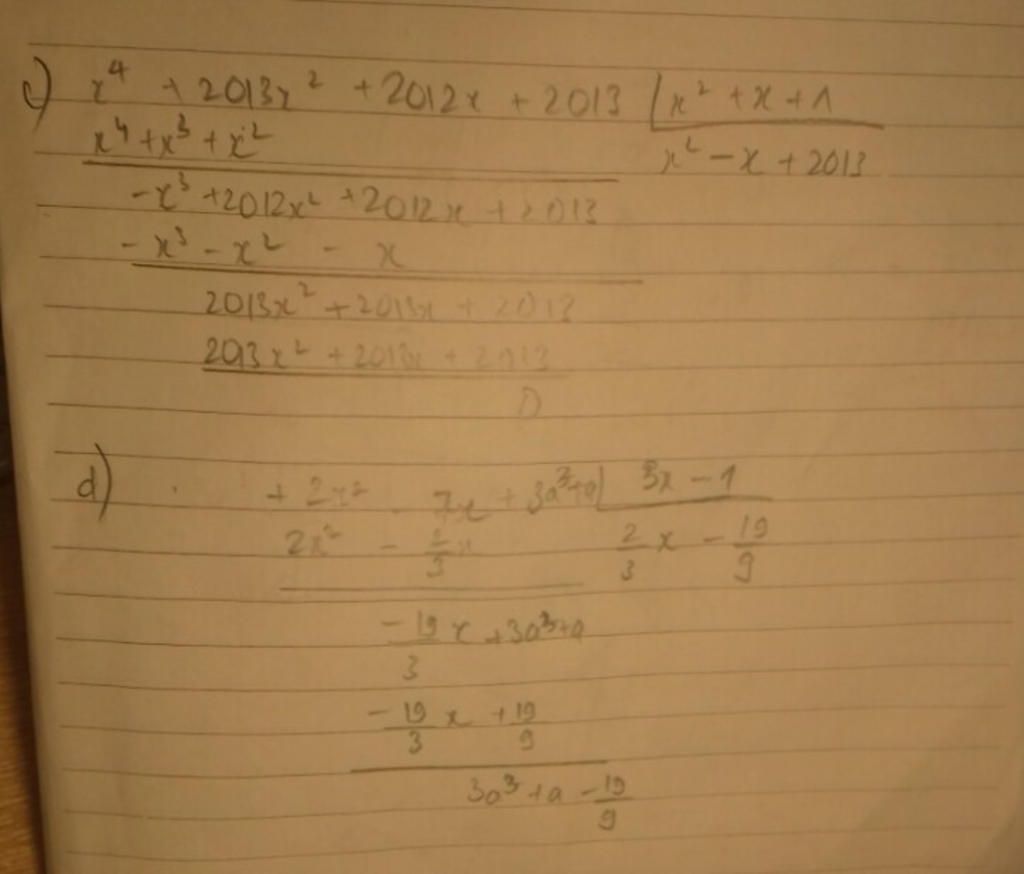 c) x⁴ + 2013x² + 2012x + 2013 | x² + x + 1
x⁴ + x³ + x² x² - x + 2013
- x³ + 2012x² + 2012x + 2013
- x³ - x² - x
2013x² + 2013x + 2013
2013x² + 2013x + 2013
0
d) + 2x² - 7x + 3a³+a | 3x - 1
2x² - 2/3 x 2/3 x - 19/9
-19/3 x + 3a³+a
-19/3 x + 19/9
3a³ + a - 19/9